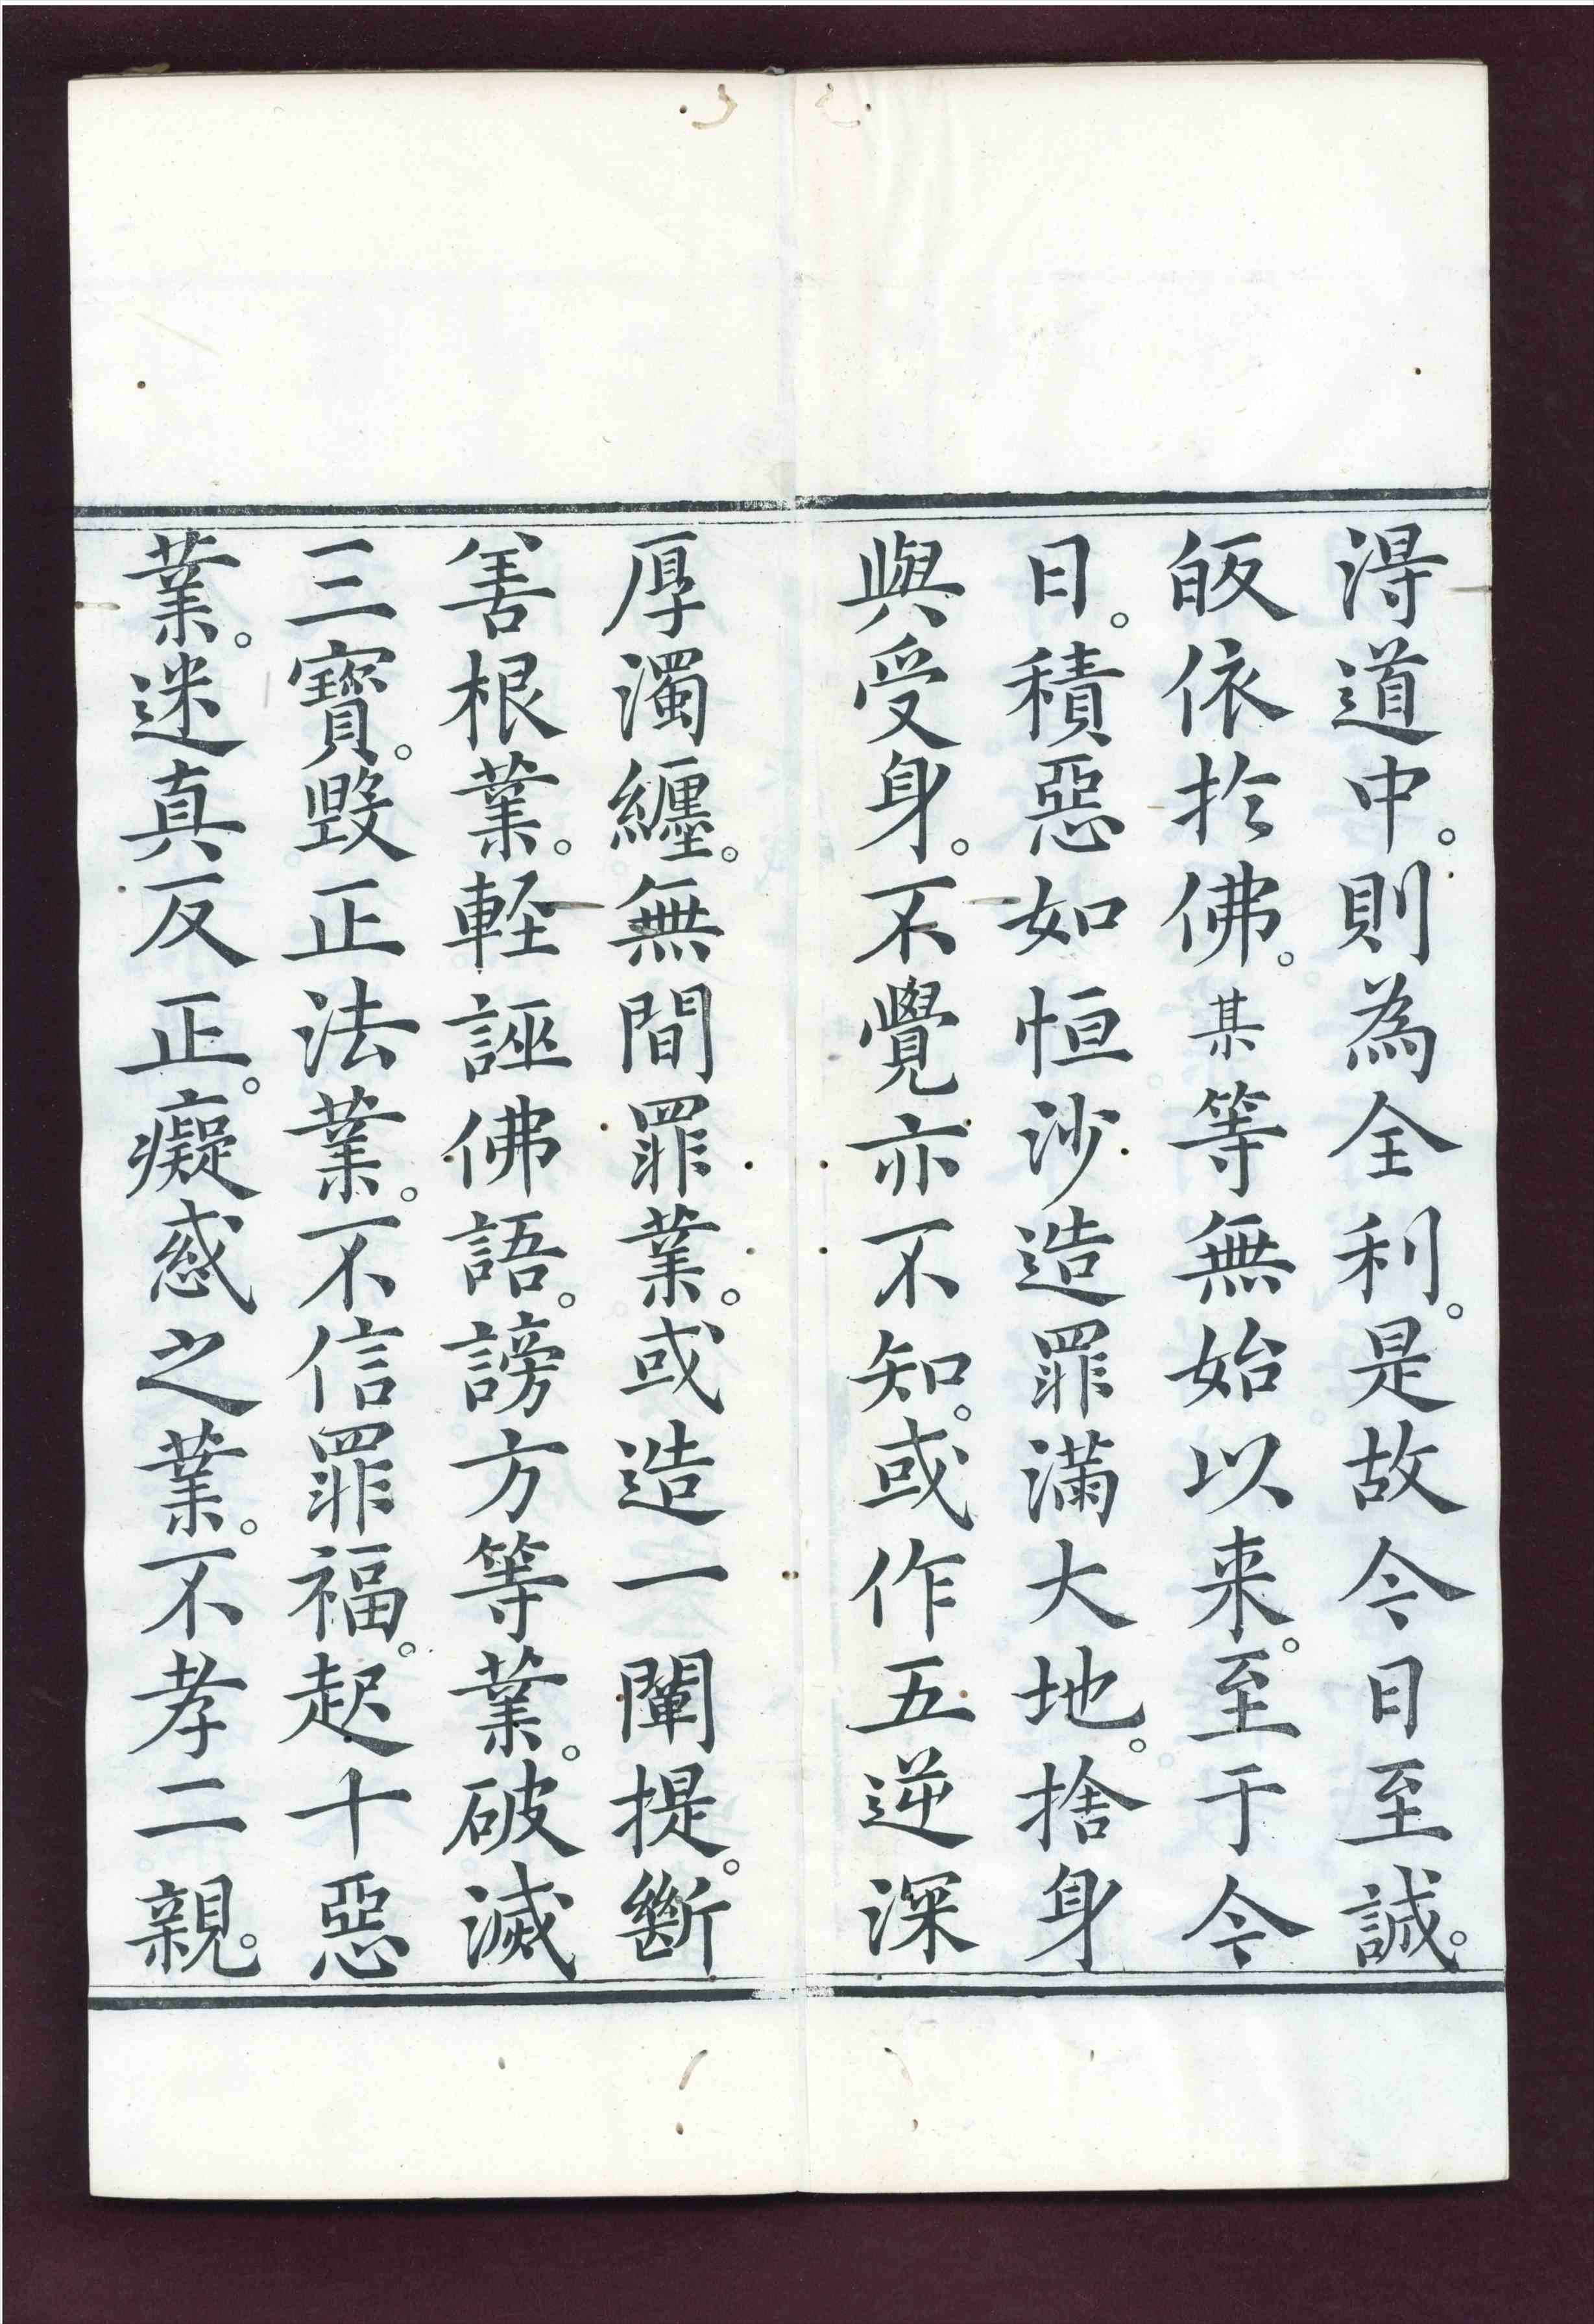 得道中。則為全利。是故今日至誠。
皈依於佛。某等無始以来。至于今
日。積惡如恒沙造罪滿大地。捨身
與受身。不覺亦不知。或作五逆深
厚濁纏。無間罪業。或造一闡提。斷
善根業。輕誣佛語。謗方等業。破滅
三寶。毀正法業。不信罪福。起十惡
業。迷真反正。癡惑之業。不孝二親。